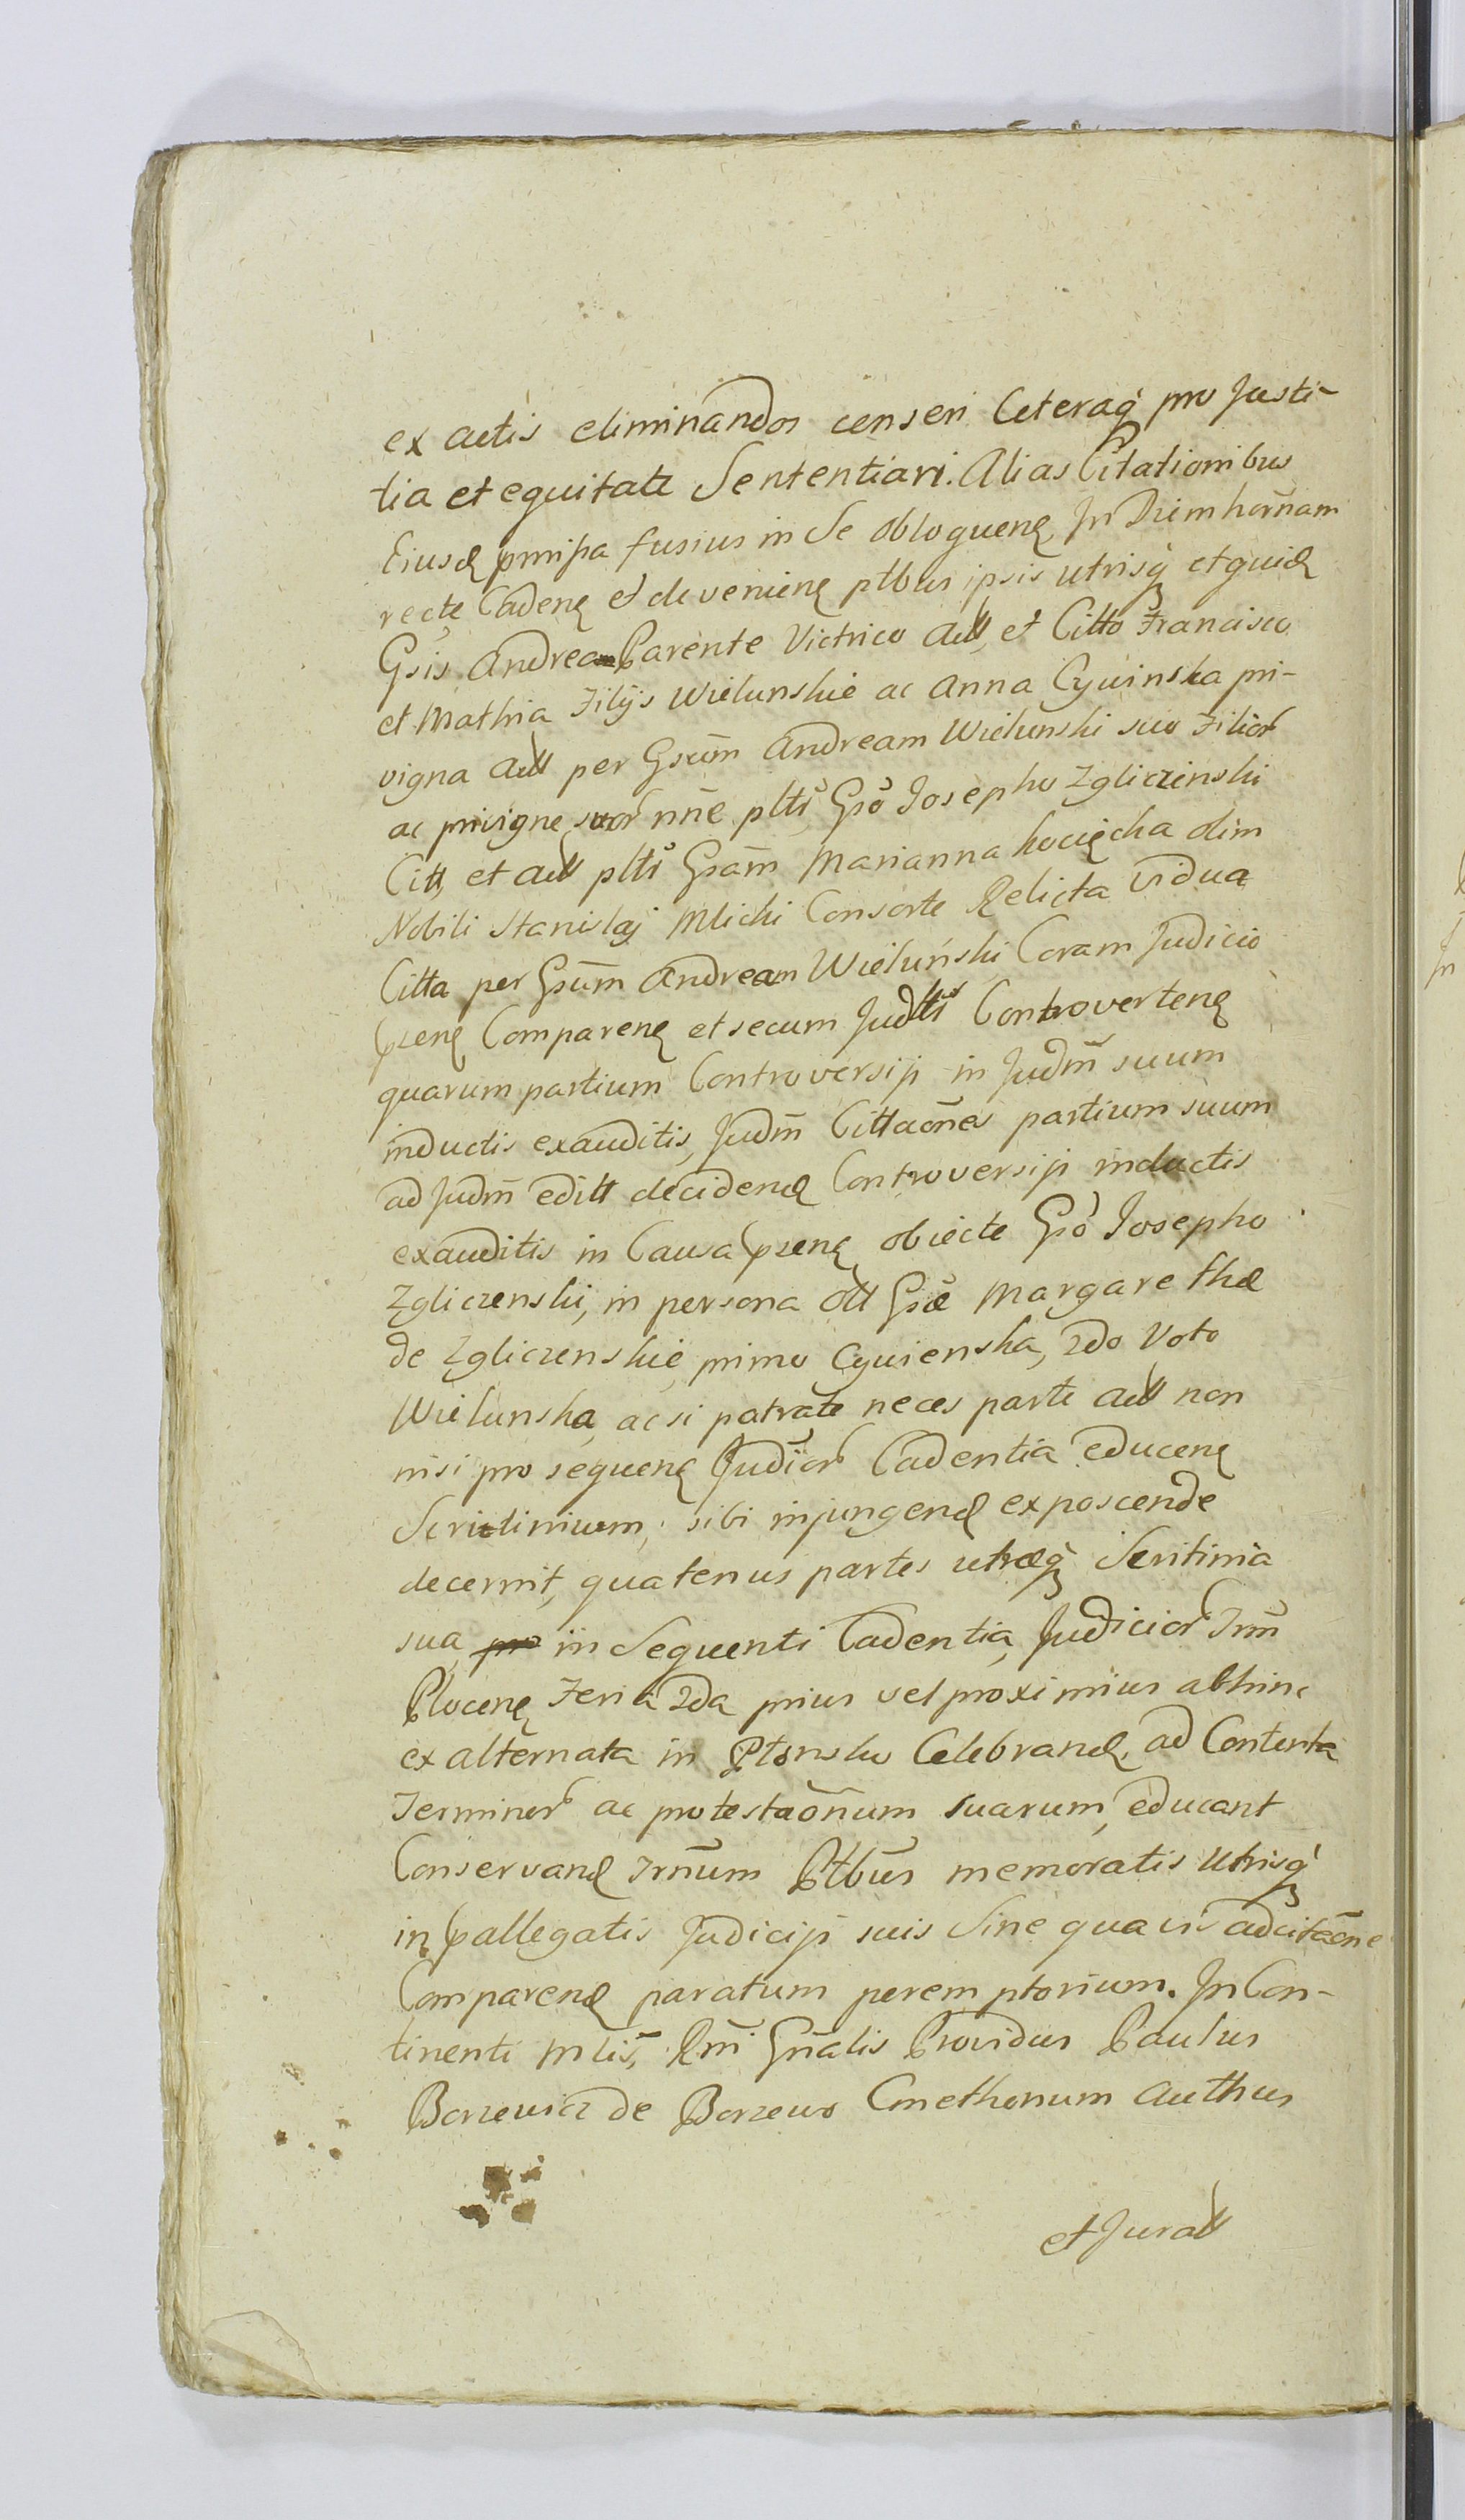 ex actis eliminandos censeri Ceteraq́ pro Justi-
tia et equitate Sententiari. Alias Citationibus
Eiusd pmissa fusius in Se obloquen In Diem hornam
recte Caden et devenien ptbus ipsis utrisq́ et quid
Gsis Andrea Parente Victrico Act, et Citto Francisco
et Mathia Filijs Wielunskie ac Anna Cywinska pri-
vigna Act per Gsum Andream Wielunski suo Filior
ac privigne suor nne pltr Gso Josepho Zgliczinski
Citt, et Act pltr Gsam Marianna kociecha olim
Nobili Stanislaj Mlicki Consorte Relicta Vidua
Citta per Gsum Andream Wieluński Coram Judicio
pzen Comparen et secum Judltr Controverten
quarum partium Controversijs in Judm suum
inductis exauditis, Judm Cittaones partium suum
ad Judm editt deciden Controversijs inductis
exauditis in Causa pzen obiecte Gso Josepho
Zgliczenski, in persona ott Gsæ Margarethæ
de Zgliczenskie primo Cywienska, 2do Voto
Wielunska, ac si patrate neces parte Act non
nisi pro sequen Judior Cadentia educen
Scrutinium, sibi injungend exposcende
decernit, quatenus partes utræq́ Scritinia
sua in Sequenti Cadentia, Judicior Trm
Plocen Feria 2da prius vel proximius abhinc
ex alternata in Plonsko Celebrand, ad Contenta
Terminor ac protestaonum suarum, educant
Conservand Trnum Ptbus memoratis utrisq́
in pallegatis Judicijs suis Sine quavis adcitaone
Comparend paratum peremptorium. In Con-
tinenti Mlis, Rni Gnalis Providus Paulus
Borzewicz de Borzewo Cmethonum Authus
et Jurat